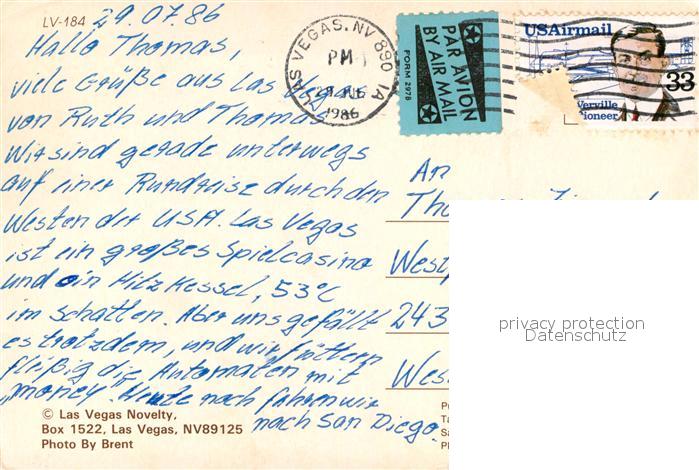 LV-184
29.07.86
Hallo Thomas,
viele Grüße aus Las Vegas
von Ruth und Thomas
Wir sind gerade unterwegs
auf einer Rundreise durch den
Westen der USA. Las Vegas
ist ein großes Spielcasino
und ein Hitzkessel, 53°C
im Schatten. Aber uns gefällt
es trotzdem, und wir füttern
fleißig die Automaten mit
"money". Heute noch fahren wir
nach San Diego.
© Las Vegas Novelty,
Box 1522, Las Vegas, NV89125
Photo By Brent
LAS VEGAS, NV 890 1A
PM
29 JUL
1986
PAR AVION
BY AIR MAIL
FORM 2978
USAirmail
33
Verville
ioneer
An
Tho
West
243
Wes
privacy protection
Datenschutz